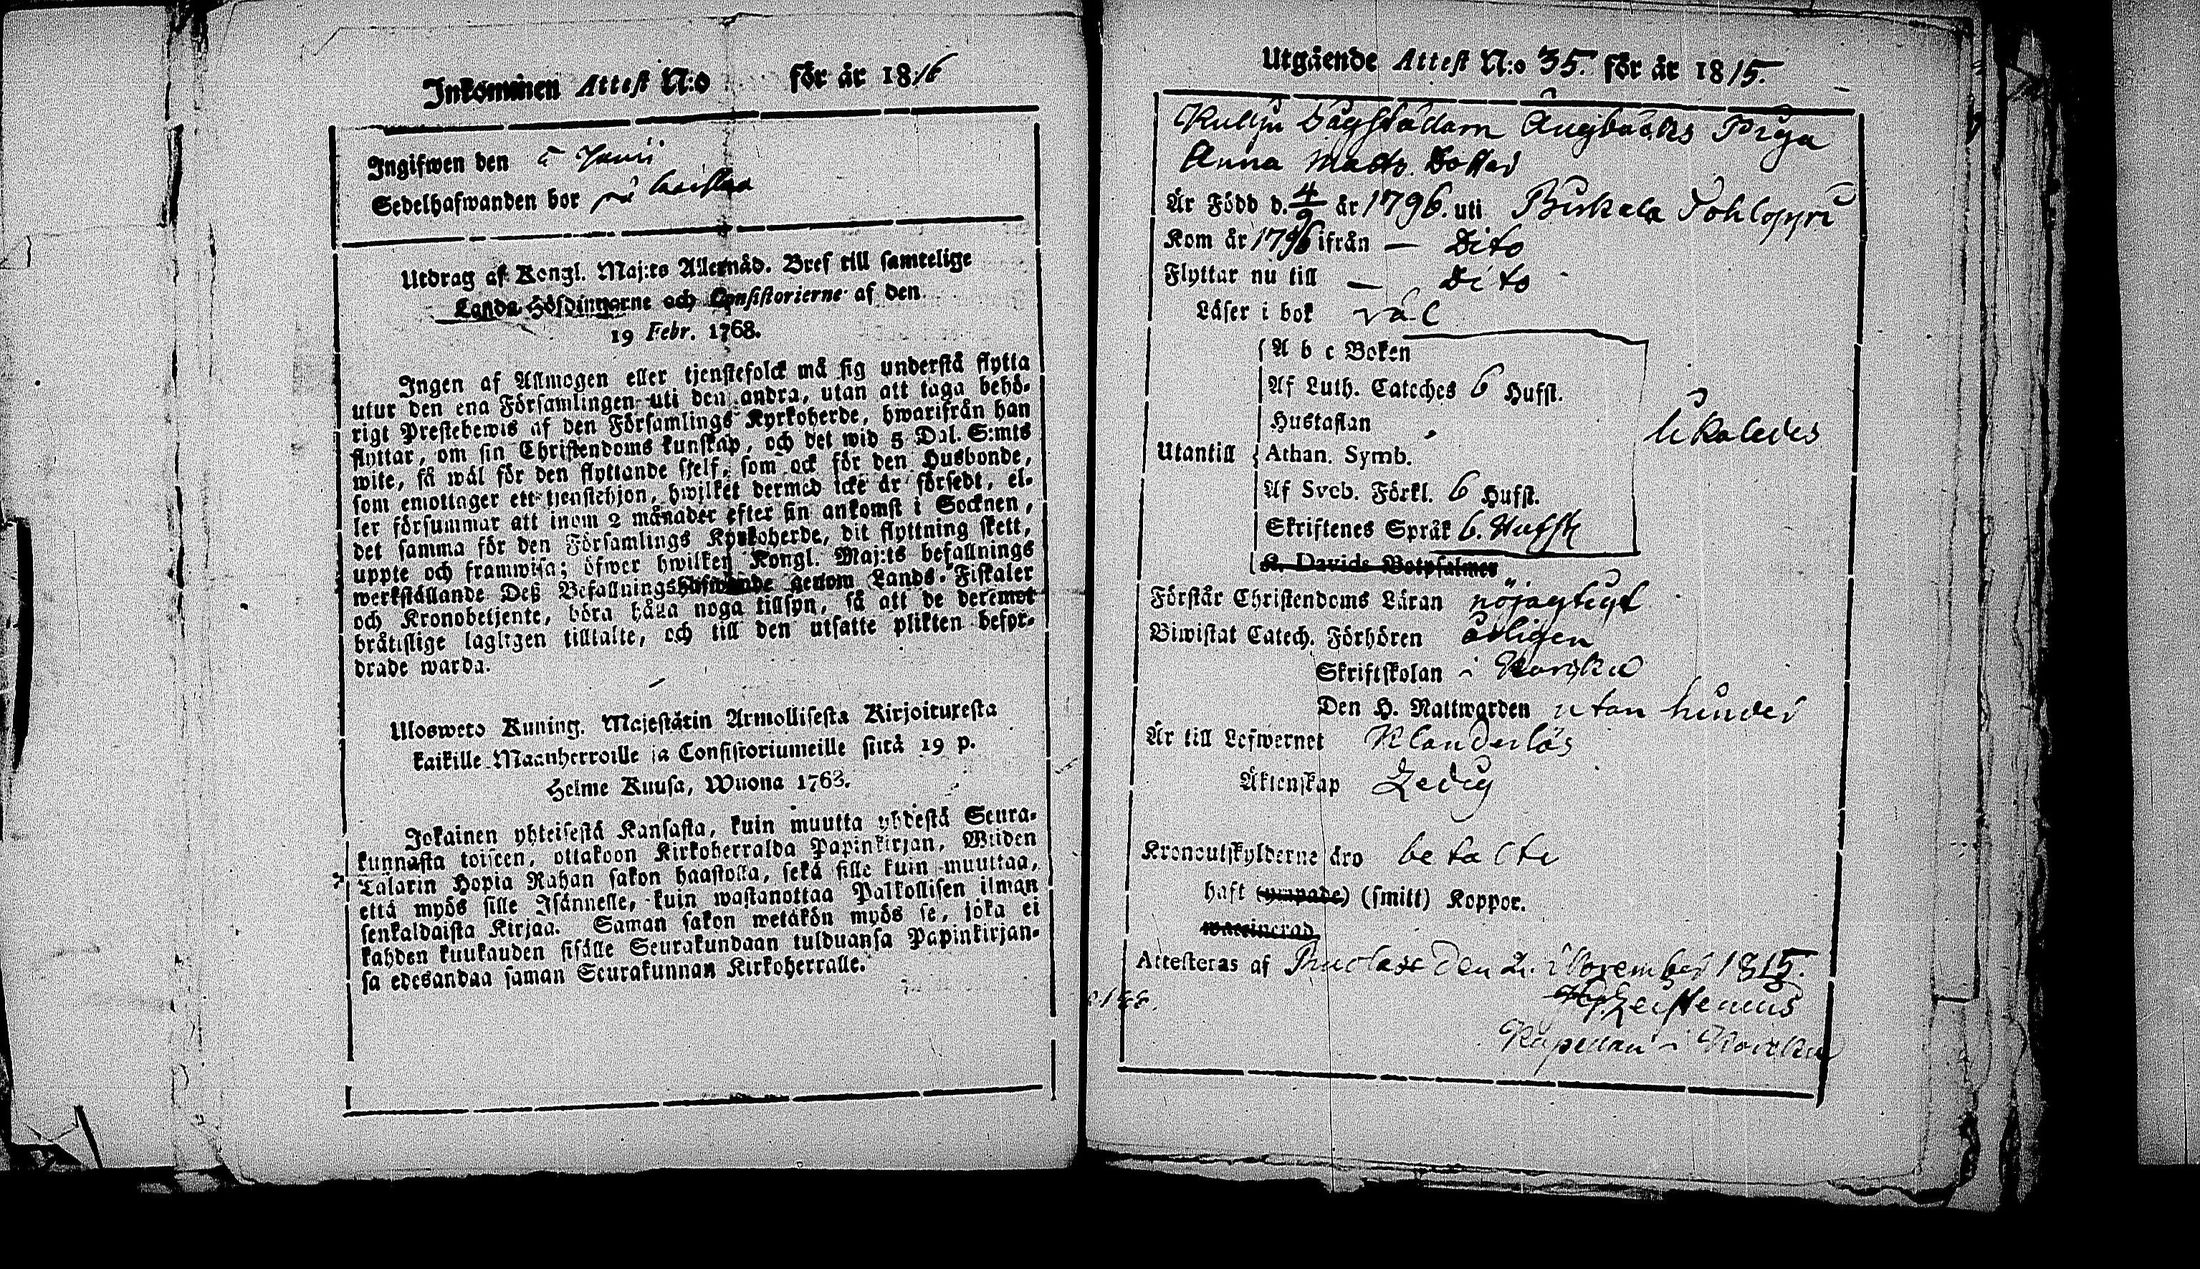 Inkommen Attest N:o för år 1816
Ingifwen den Junii
Sedelhafwanden bor på
Utdrag af Kongl. Maj:ts Allernåd. Bref till samtelige
Landshöfdingarne och Consistorierne af den
19 Febr. 1768.
Ingen af Allmogen eller tjenstefolck må sig understå flytta
utur den ena Församlingen uti den andra, utan att taga behö-
rigt Prestebewis af den Församlings Kyrkoherde, hwarifrån han
flyttar, om sin Christendoms kunskap, och det wid 5 Dal. S:mts
wite, så wäl för den flyttande sjelf, som ock för den Husbonde,
som emottager ett tjenstehjon, hwilket dermed icke är försedt, el-
ler försummar att inom 2 månader efter sin ankomst i Socknen,
det samma för den Församlings Kyrkoherde, dit flyttning skett,
uppte och framwisa; öfwer hwilken Kongl. Maj:ts befallnings
werkställande Deß Befallningshafwande genom Lands-Fiskaler
och Kronobetjente, böra hålla noga tillsyn, så att de deremot
bråtislige lagligen tilltalte, och till den utsatte plikten befor-
drade warda.
Ulosweto Kuning. Majestätin Armollisesta Kirjoituxesta
kaikille Maanherroille ja Consistoriumeille siitä 19 p.
Helme Kuusa, Wuona 1763.
Jokainen yhteisestä Kansasta, kuin muutta yhdestä Seura-
kunnasta toiseen, ottakoon Kirkoherralda Papinkirjan, Wiiden
Talarin Hopia Rahan sakon haastolla, sekä sille kuin muuttaa,
että myös sille Isännelle, kuin wastanottaa Palkollisen ilman
senkaldaista Kirjaa. Saman sakon wetäkön myös se, joka ei
kahden kuukauden sisälle Seurakundaan tulduansa Papinkirjan-
sa edesandaa saman Seurakunnan Kirkoherralle.
Utgående Attest N:o 35. för år 1815.
Pyga
Anna Matts. Dotter
Är Född d. 4/9 år 1796. uti Birkala
Kom år 1796 ifrån — Dito
Flyttar nu till — Dito
Läser i bok väl
A b c Boken
Af Luth. Cateches 6 Hufst.
Hustaflan
likaledes
Utantill Athan. Symb.
Af Sveb. Förkl. 6 Hufst.
Skriftenes Språk 6. Hufst
K. Davids Botpsalmer
Förstår Christendoms Läran nöjagtigt
Biwistat Catech. Förhören årligen
Skriftskolan i Karkku
Den H. Nattwarden utan hinder
Är till Lefwernet Klanderlös
Äktenskap Ledig
Kronoutskylderne äro betalte
haft (ympade) (smitt) Koppor.
waccinerad
Attesteras af den 2. November 1815.
Kapellan i Karkku